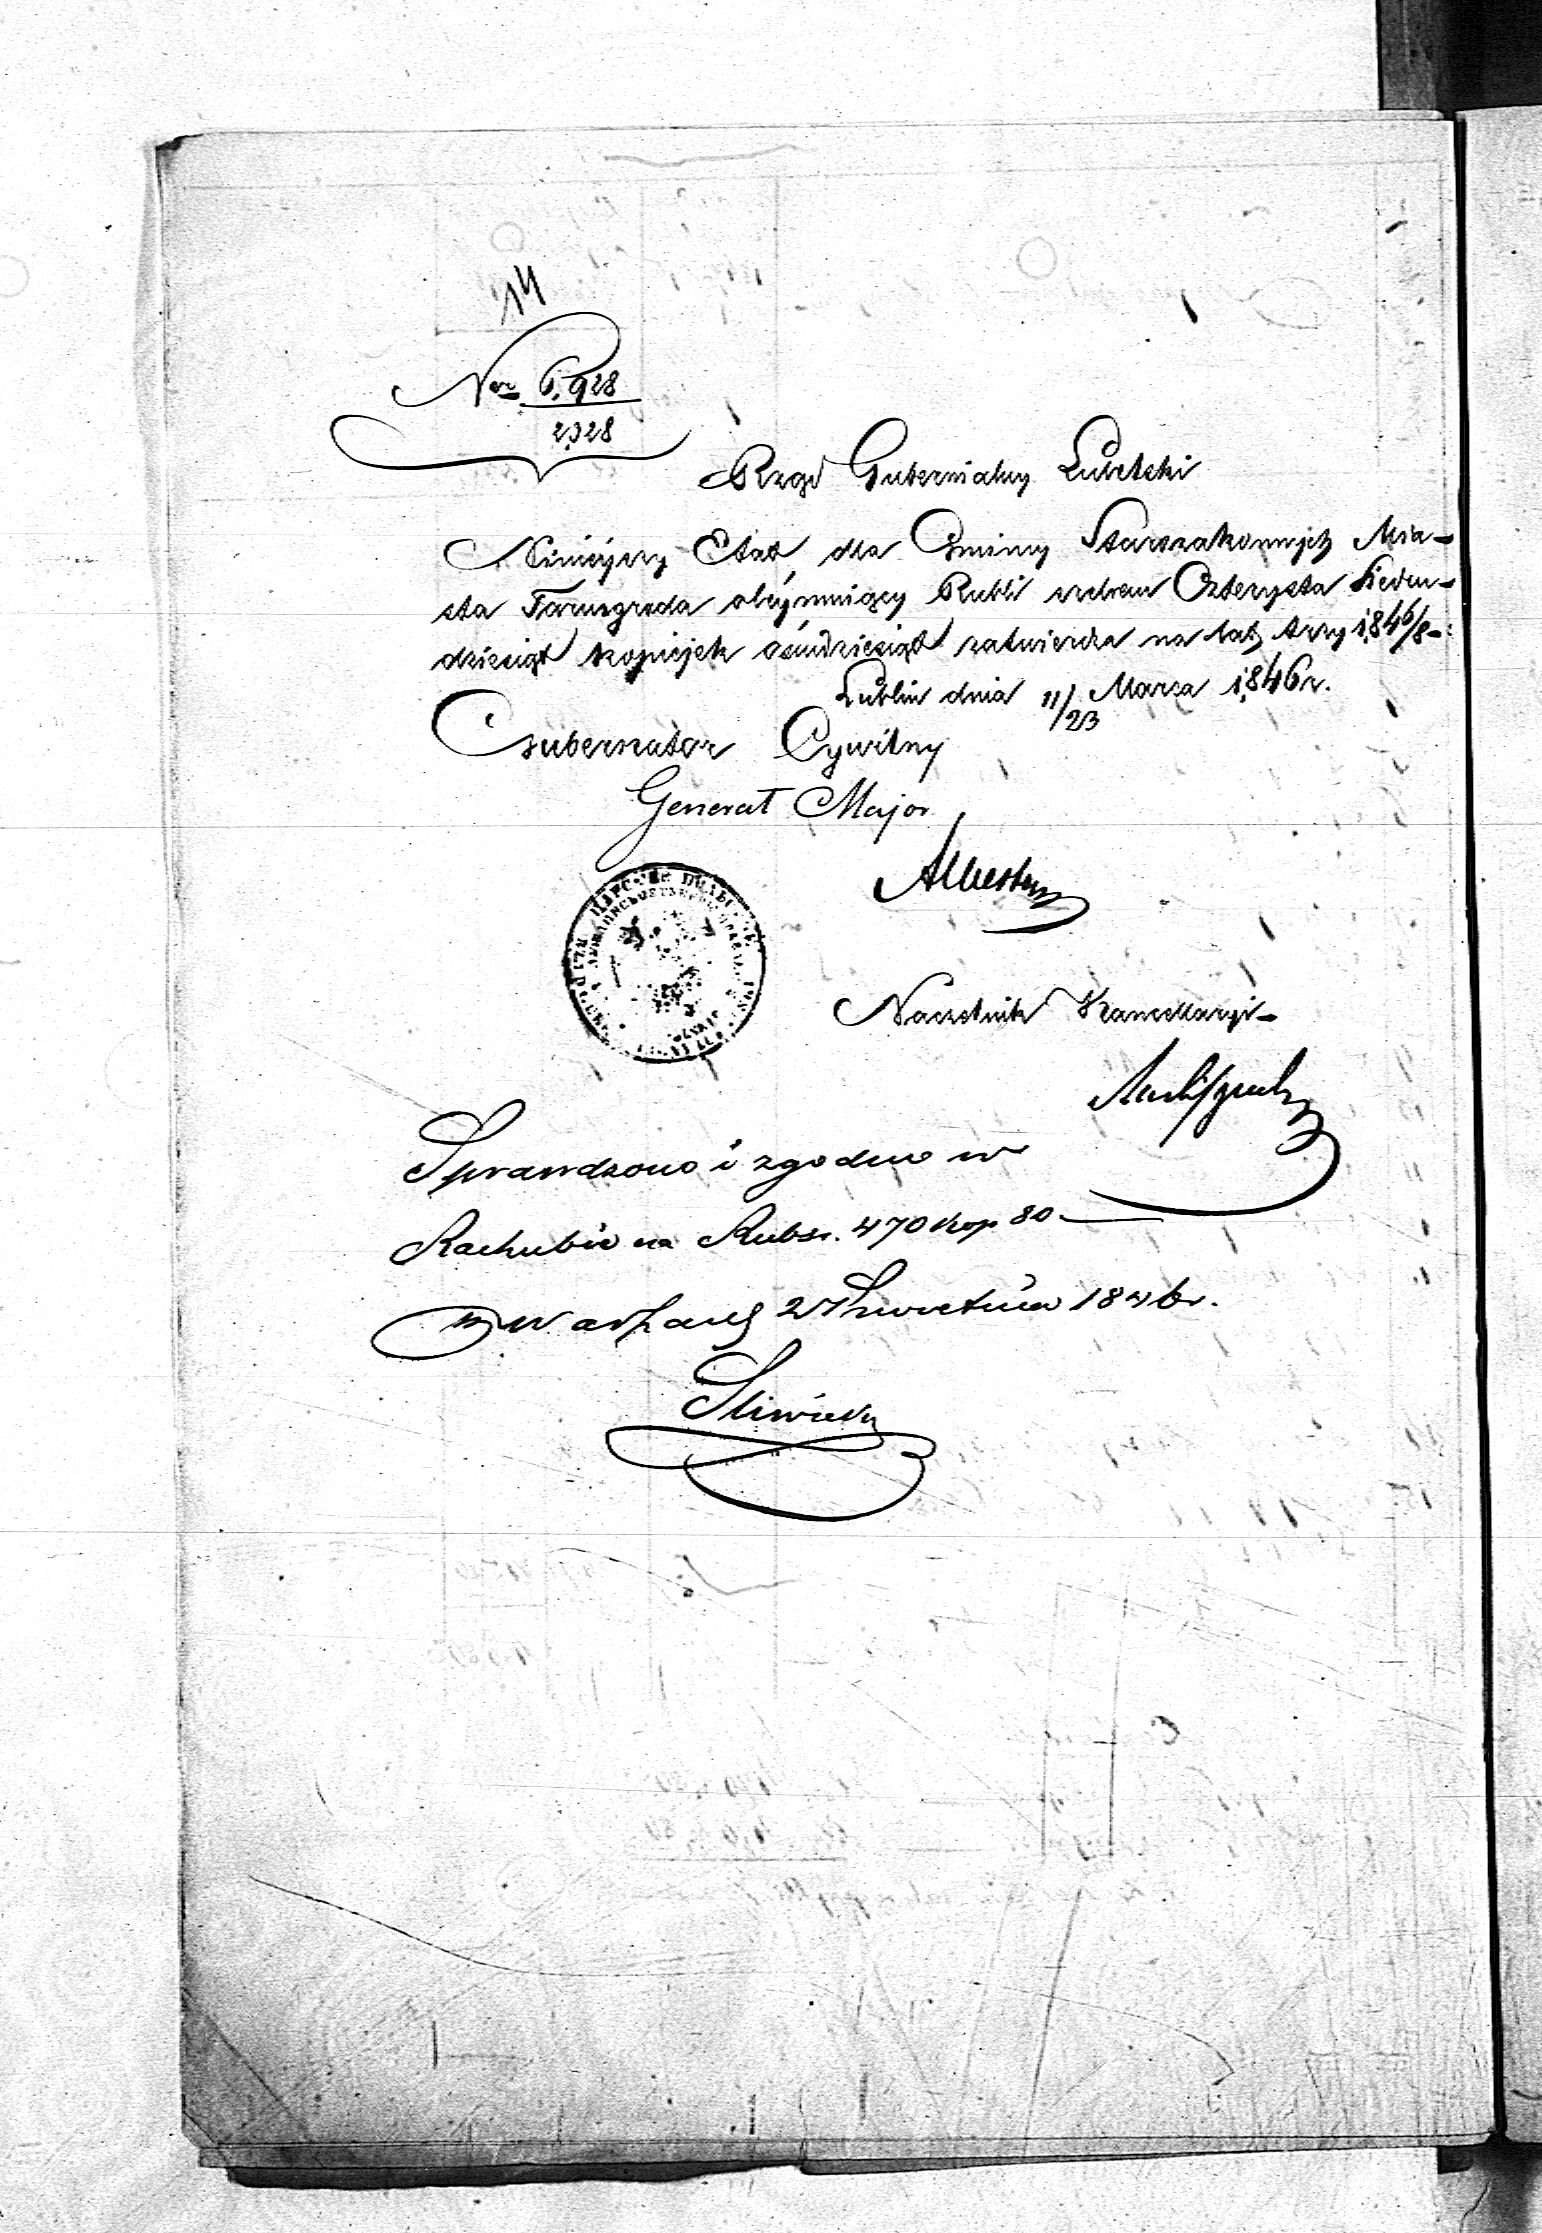 14
Nr 6,928
2928
Rząd Gubernialny Lubelski
Niniejszy Etat dla Gminy Starozakonnych Mia-
sta Tarnogroda obeymuiący Rubli srebrem Czterysta Siedm-
dziesiąt kopiejek ośmdziesiąt zatwierdza na lat trzy 1846/8.
Lublin dnia 11/23 Marca 1846 r.
Gubernator Cywilny
Generał Major
Naczelnik Kancellaryi
Sprawdzono i zgodne w
Rachubie na Rubsr. 470 kop 80
w Warszawie 27 Kwietnia 1846 r.